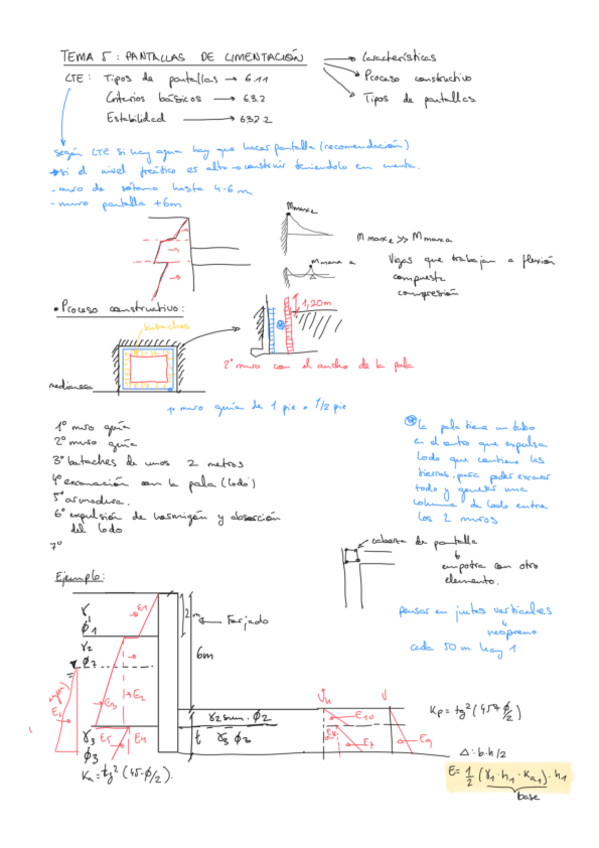 TEMA 5: PANTALLAS DE CIMENTACIÓN
Características
Proceso constructivo
Tipos de pantallas
CTE: Tipos de pantallas → 6.1.1
Criterios básicos → 6.3.2
Estabilidad → 6.3.2.2
según CTE si hay agua hay que hacer pantalla (recomendación)
si el nivel freático es alto → construir teniéndolo en cuenta.
- muro de sótano hasta 4-6 m
- muro pantalla +6m
Mmaxe
Mmaxe >> Mmaxa
Mmaxa
Vigas que trabajan a flexión
compuesta
compresión
• Proceso constructivo:
bataches
1,20m
2º muro con el ancho de la pala
medianera
muro guía de 1 pie o 1/2 pie
1º muro guía
2º muro guía
3º bataches de unos 2 metros
4º excavación con la pala (lodo)
5º armadura.
6º expulsión de hormigón y absorción
del lodo
7º
la pala tiene un tubo
en el que expulsa
lodo que contiene las
tierras, para poder excavar
todo y generar una
columna de lodo entre
los 2 muros
cabeza de pantalla
empotra con otro
elemento.
pensar en juntas verticales
neopreno
cada 50 m hay 1
Ejemplo:
γ1
ϕ1
E1
2m
Forjado
γ2
ϕ2
6m
E2
E3
γ2sum. ϕ2
E10
γ3
ϕ3
E5
E4
t
γ3 ϕ3
E8
E7
E9
Kp = tg²(45+ϕ/2)
Ka = tg²(45-ϕ/2).
△: b·h/2
E = 1/2 (γ1·h1·Ka1)·h1
base